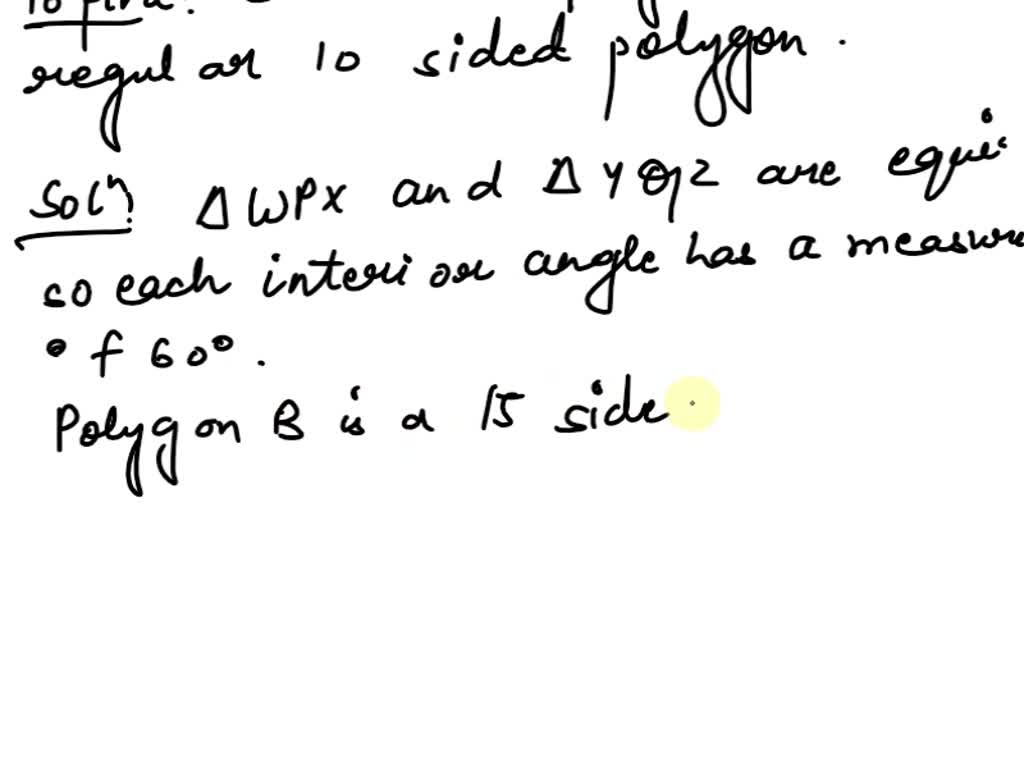 To find:
regular 10 sided polygon.
Soln: Δ WPX and Δ YQZ are equi
so each interior angle has a measur
of 60°.
Polygon B is a 15 side